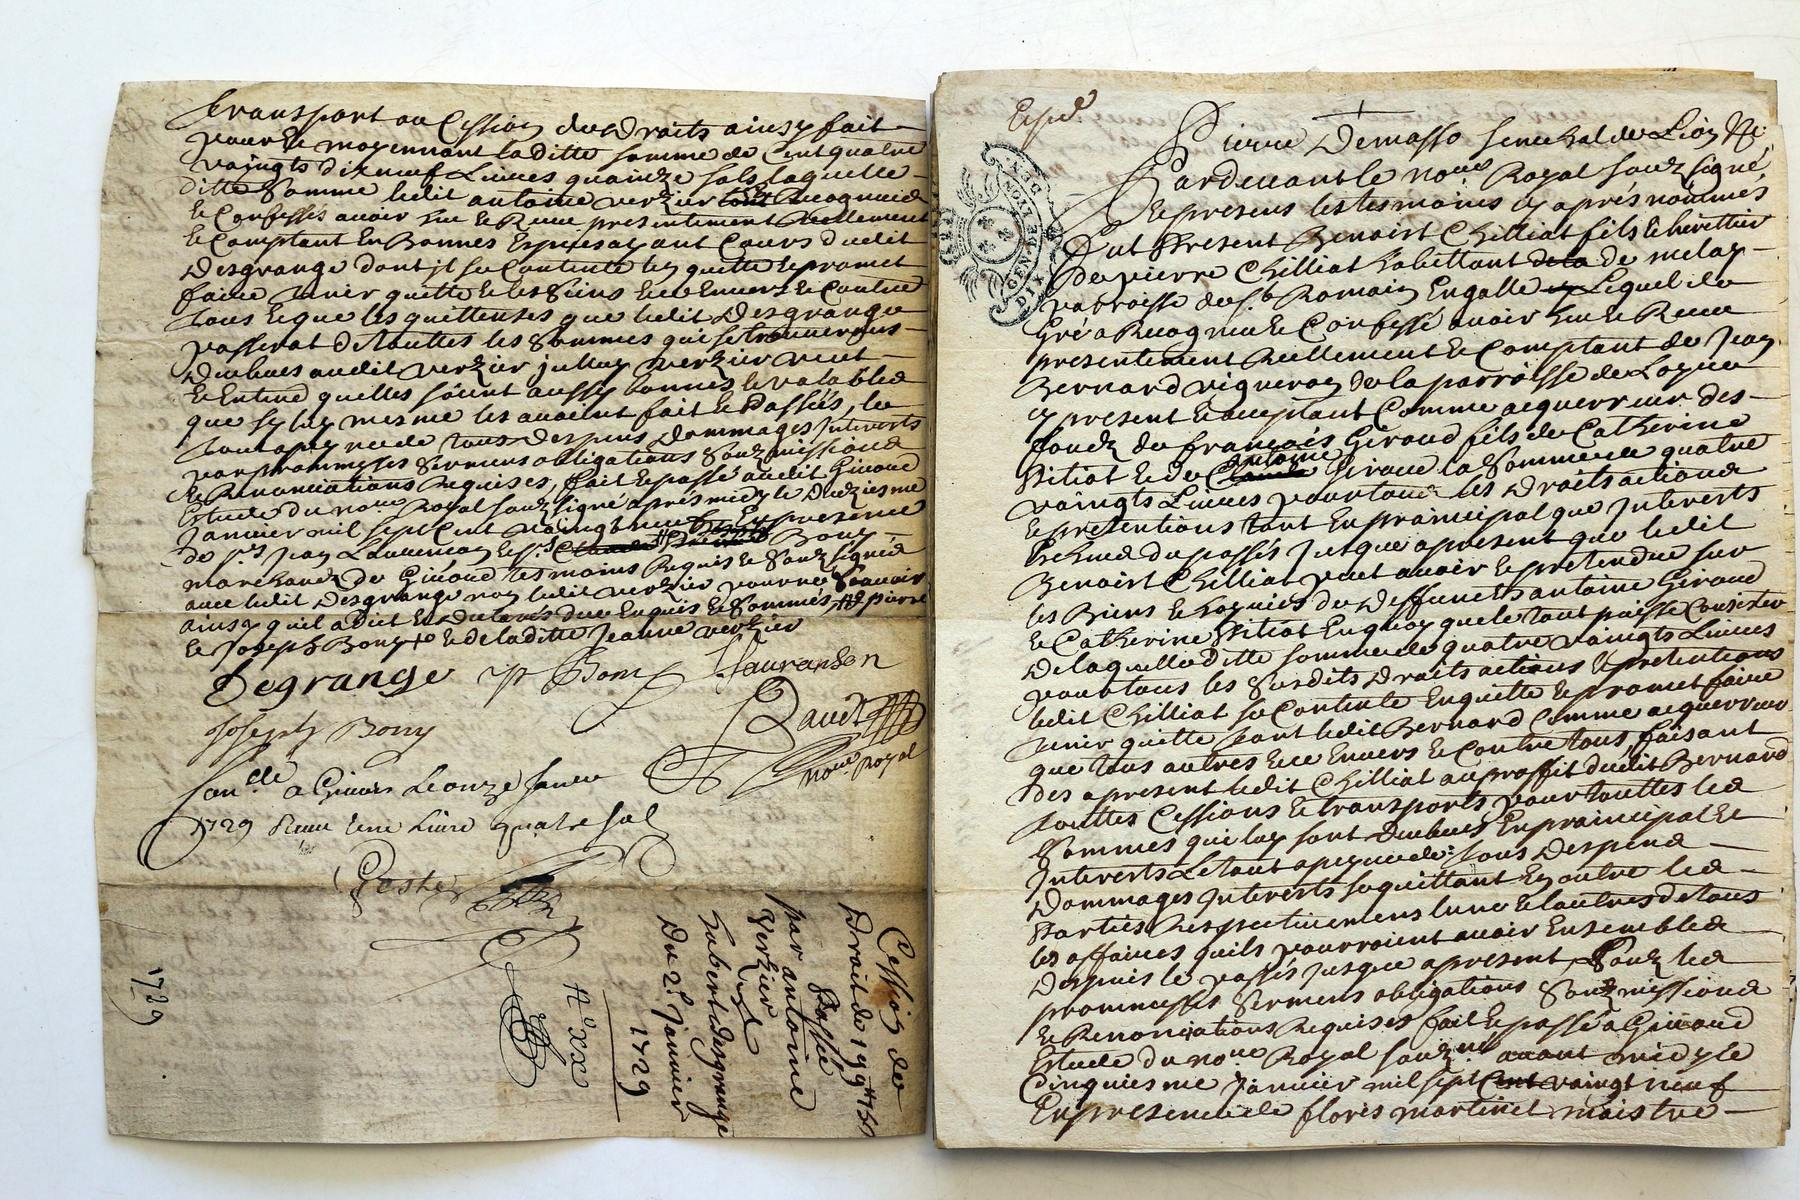 transport ou Cession des Droits ainsy fait
pour le moyennant laditte somme de Cent quatre
vaingts dix neuf Livres quainze sols laquelle
ditte Somme ledit antoine verzier Recognieu
le Confessés avoir heu le Receu presentement Reellement
le Comptant En Bonnes Especes ayant Cours dudit
Desgrange dont jl se Contente les quitte le promet
faire tenir quitte le les Siens Envers le Contre
tous le que les quittances que ledit Desgrange
passerat de touttes les Sommes qui se trouverons
Deubues audit verzier julluy verzier veut
le Entend quelles soient aussy bonnes le valables
que sy luy mesme les avoient fait le Passés, le
tout a peyne de tous Despens Dommages jnterets
par prommesses Sermens obligations Soubzmissions
le Renonciations Requises, fait le passé audit Givord
Estude du nore Royal soubzsigné aprés midy le Deuziesme
Janvier mil sept Cent vaingt neuf En presence
de Srs Jean Laurenson le Sr Bony
marchands de Givord tesmoins Requis le Soubzsignés
avec ledit Desgrange non ledit verzier pour ne Scavoir
ainsy quil a dit le Declarés de ce Enquis le Sommés, # pierre
le Joseph Bony le de laditte Jeanne verzier
Degrange p Bony J Lauranson
Joseph Bony Baudt
nore Royal
Conlé a Givors Le onze Janv
1729 Receu Une Livre quatre sol
Gester
Cession de
Droit de 199# 15s
Passée
par antoine
verzier
a Sr
hubert desgrange
Du 2e Janvier
1729
No XXX
1729
Expé
Pierre Demasso Senechal de Lion &c
Pardevant le nore Royal soubzsigné
le presens les tesmoins cy aprés nommés
fut Present Benoist Chilliat fils le herittier
de pierre Chilliat habittant de melay
parroisse de St Romain Engalle Lequel de
Gré a Recognieu le Confessé avoir heu le Receu
presentement Reellement le Comptant de Jean
Bernard vigneron de la parroisse de Loyre
cy present le acceptant Comme acquerreur des
fondz de françois Giroud fils de Catherine
Pitiot le de antoine Giroud la Somme de quatre
vaingts Livres pour tous les Droits actions
le pretentions tant En prainscipal que Jnterets
Escheus du passés jusque apresent que ledit
Benoist Chilliat peut avoir le pretendre sur
les Biens le hoyries des Deffuncts antoine Giroud
le Catherine Pitiot En quoy que le tout puisse Consister
De laquelle ditte somme de quatre vaingts Livres
pour tous les Susdits Droits actions le pretentions
ledit Chilliat se Contente En quitte le promet faire
tenir quitte tant ledit Bernard Comme acquerreur
que tous autres Envers le Contre tous, faisant
des apresent ledit Chilliat au proffit dudit Bernard
touttes Cessions le transports pour touttes les
Sommes qui luy sont deubues En prainscipal le
Jnterets Le tout a peyne de tous Despens
Dommages jnterets se quittant En outre les
Parties Respectivement lune le lautre de tous
les affaires quils pourroient avoir Ensembles
Despuis le passés jusque apresent, Soubz les
prommesses Sermens obligations Soubzmissions
le Renonciations Requises fait le passé a Givord
Estude du nore Royal soubzné avant midy le
Cinquiesme Janvier mil sept Cent vaingt neuf
En presence de floris martinet maistre